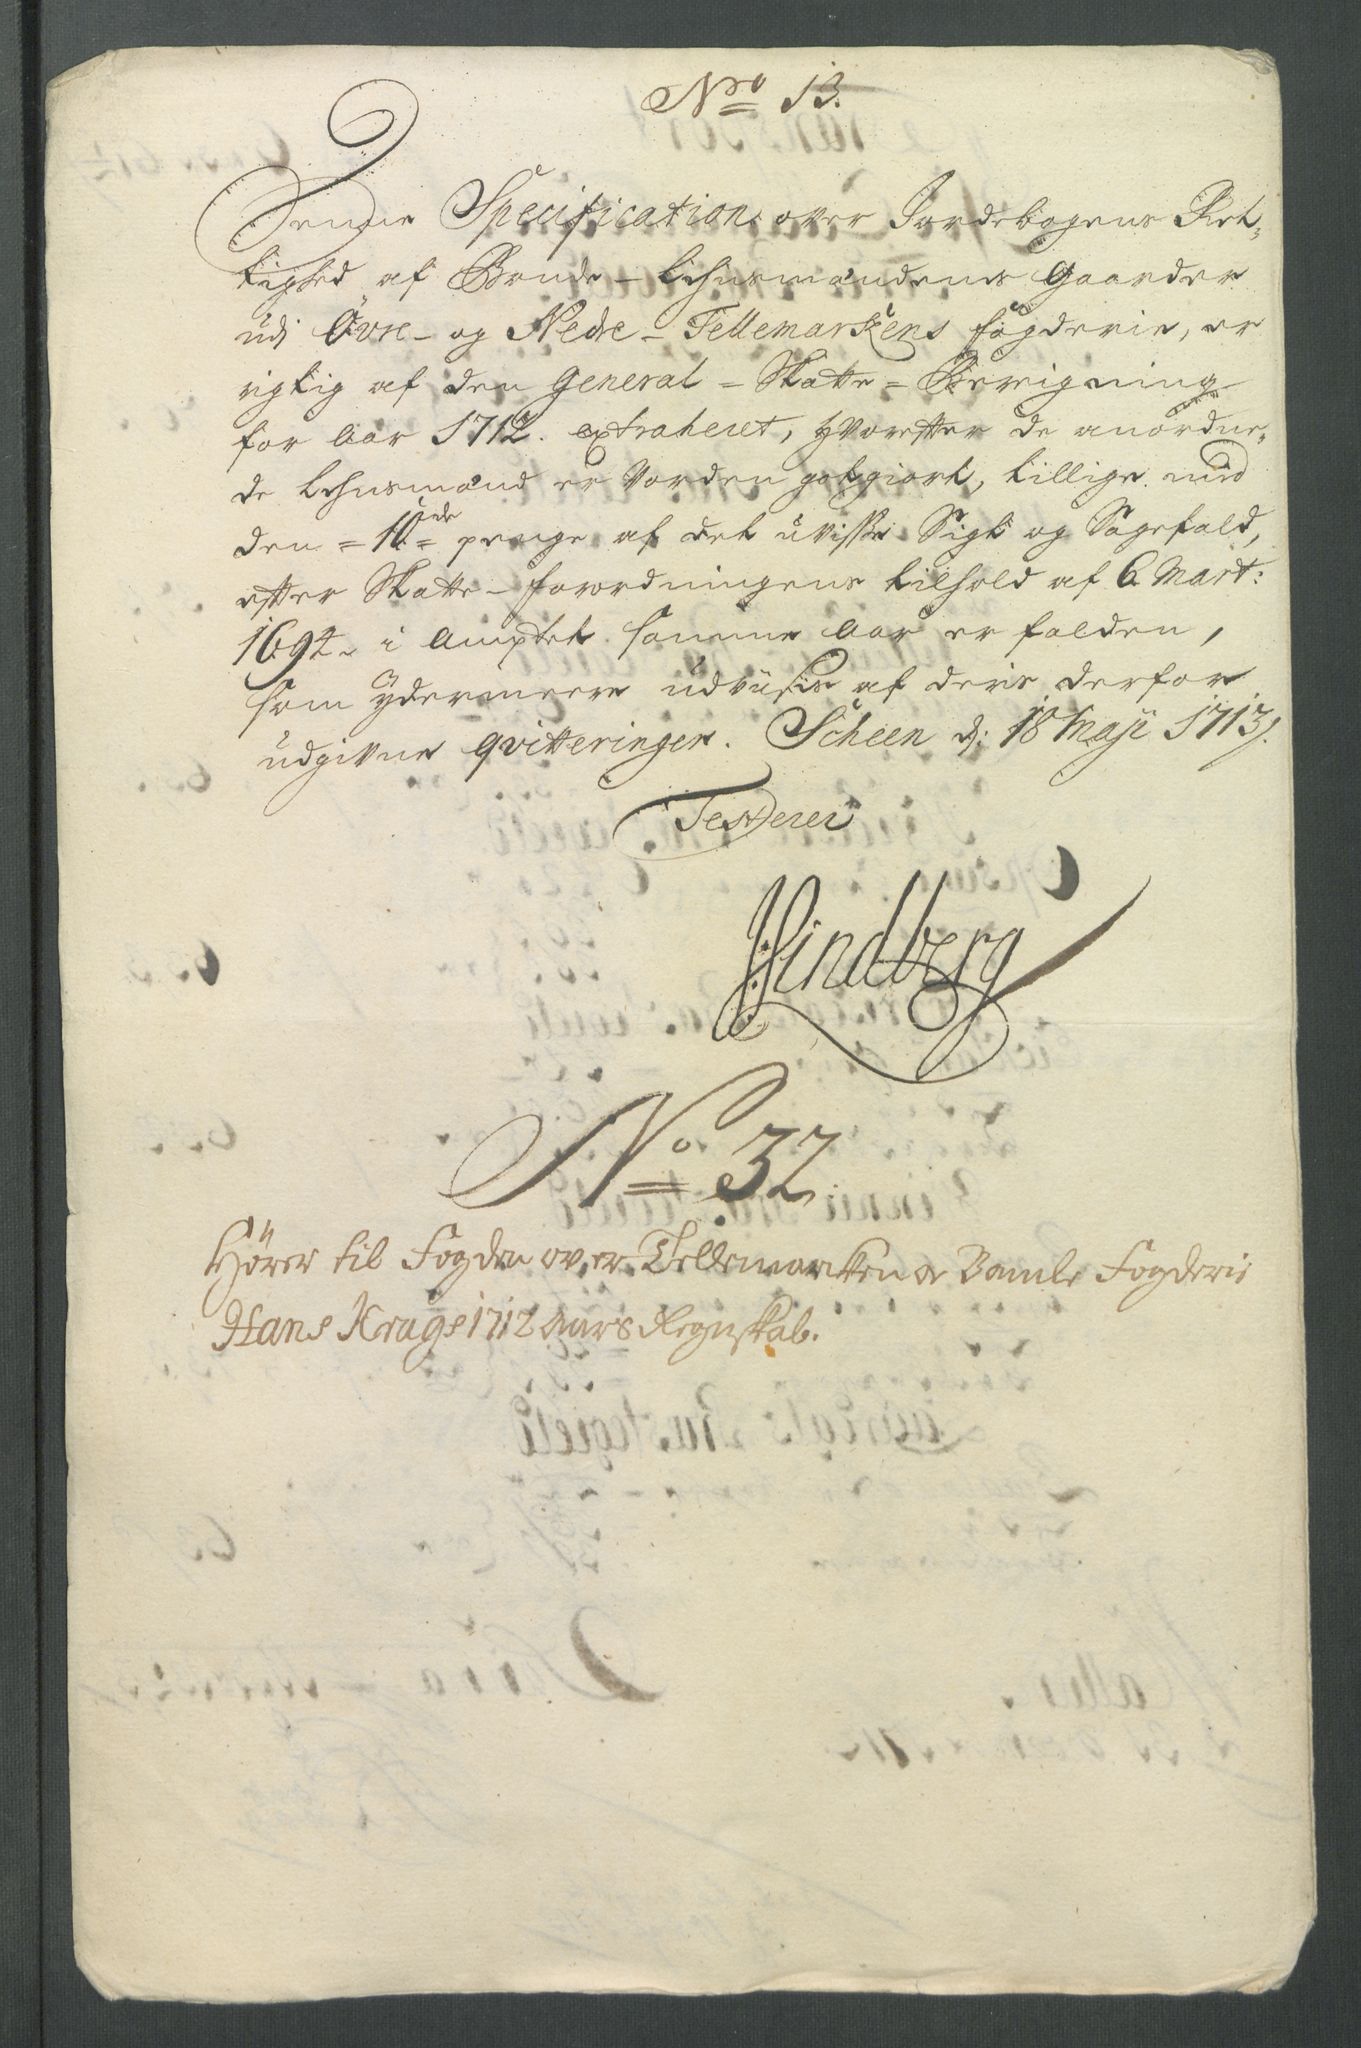 Nro 13.
Denne Specification over Jordebogens Ret-
tighed af Bonde-Lehnsmændenes Gaarder
udj Øvre- og Nedre-Tellemarkens fogderie, er
rigtig af den General-Skatte-Berigning
for Aar 1712. extraheret, hvorefter de anordne-
de Lehnsmænd er vorden gotgiort, tillige med
den 10de penge af det uvisse Sigt og Sagefald,
efter Skatte-forordningens tilhold af 6 Mart:
1694 i Amptet samme Aar er falden,
som ydermeere udviises af deris derfor
udgivne qvitteringer. Scheen d: 18 Maji 1713.
Testerer
HLindberg
No 32
Hører til Fogden over Tellemarken oc Bamle Fogderie
Hans Krags 1712 Aars Regnskab.